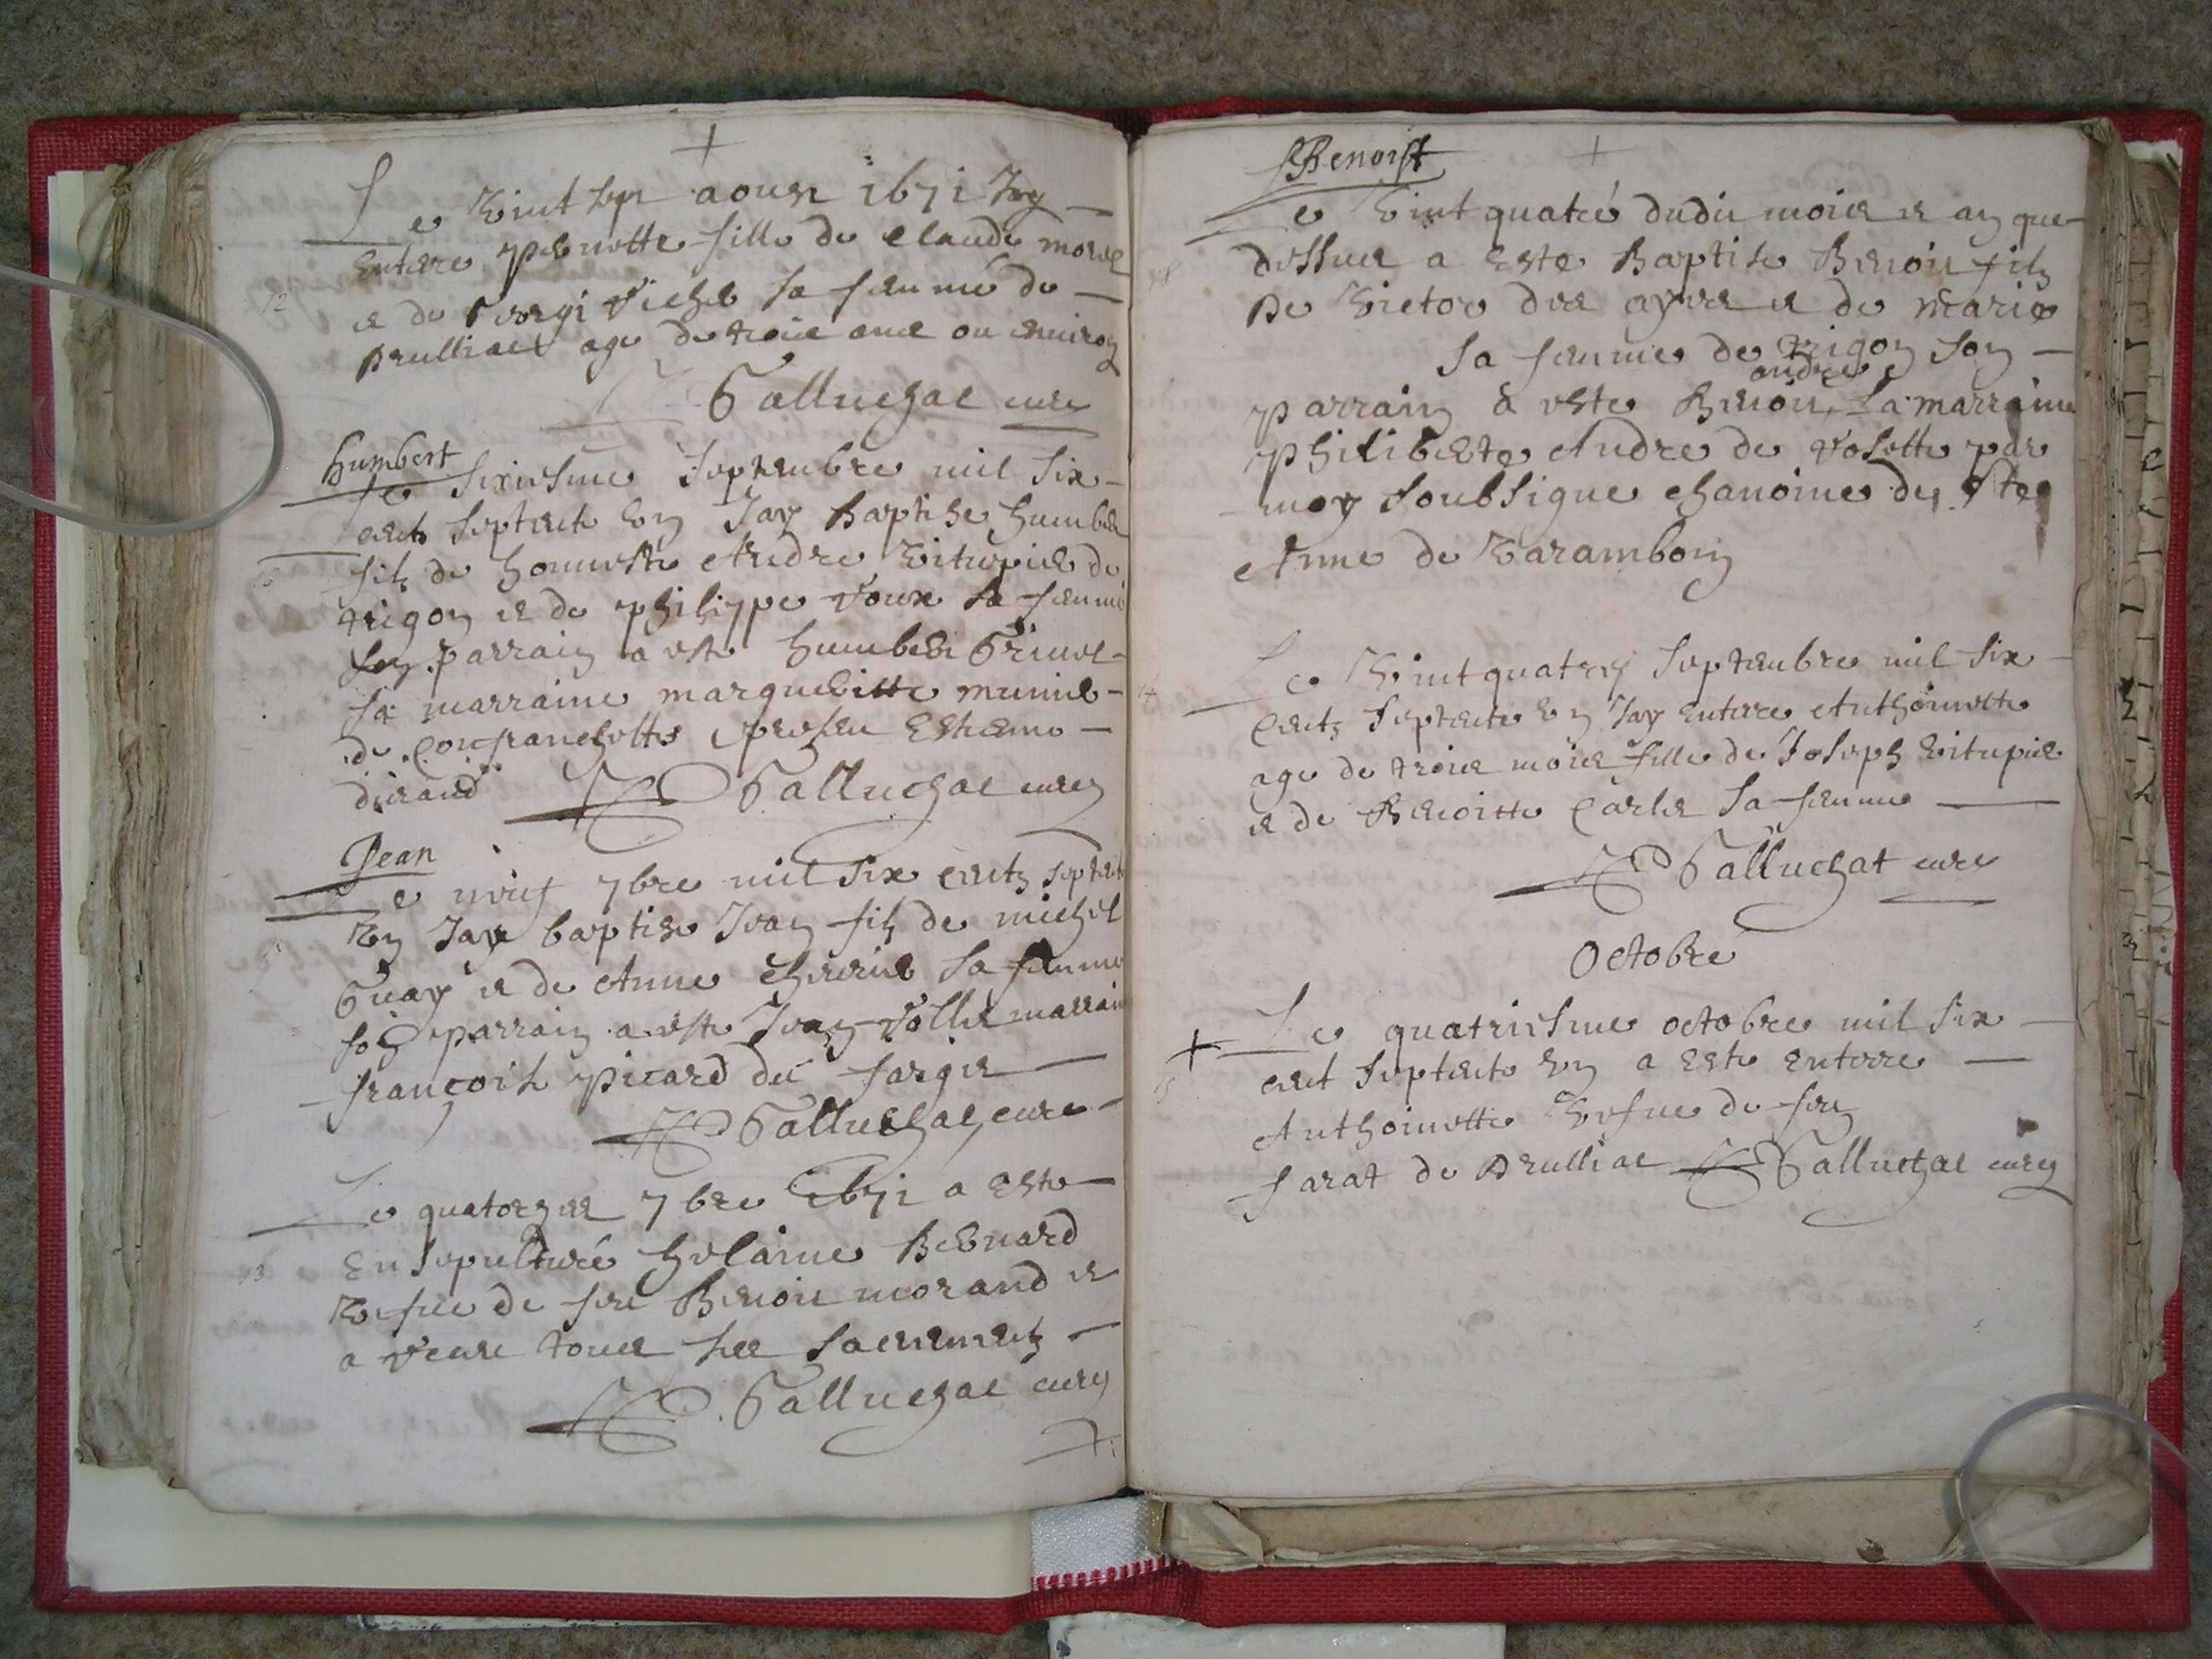 Le Vint sept aoust 1671 Jay
enterre Pernette fille de Claude morel
et de sa femme de
Drulliat age de trois ans ou environ
Galluchat cure
Humbert
Le sixiesme Septembre mil six
cents septente un Jay Baptise humbert
filz de honneste Andre Vitupier de
trigon et de philippe roux sa femme
son parrain a este humbert
sa marraine margueritte munier
de present Estienne
durand Galluchat cure
Jean
Le neuf 7bre mil six cents septente
un Jay baptise Jean filz de michel
Guay et de Anne sa femme
son parrain a este Jean marraine
francoise picard du farget
Galluchat cure
Le quatorzie 7bre 1671 a este
Ensepulture helaine Bernard
Vefue de feu Benoit morand et
a receu tous ses sacrements
Galluchat cure
Benoist
Le Vint quatre dudit mois et an que
dessus a este Baptise Benoit filz
De Victor des ayres et de Marie
sa femme de trigon son
andre
parrain a este Benoit La marraine
Philiberte Andre de rosette par
moy soubsigne chanoine de Ste
Anne de Varambon
13
14
Le Vint quatre Septembre mil six
Cents Septente un Jay enterre Anthoinette
age de trois mois fille de Joseph Vitupier
et de Benoitte Carles sa femme
Galluchat cure
Octobre
Le quatriesme octobre mil six
cent septente un a este enterre
Anthoinette Vefue de feu
farat de Drulliat Galluchat cure